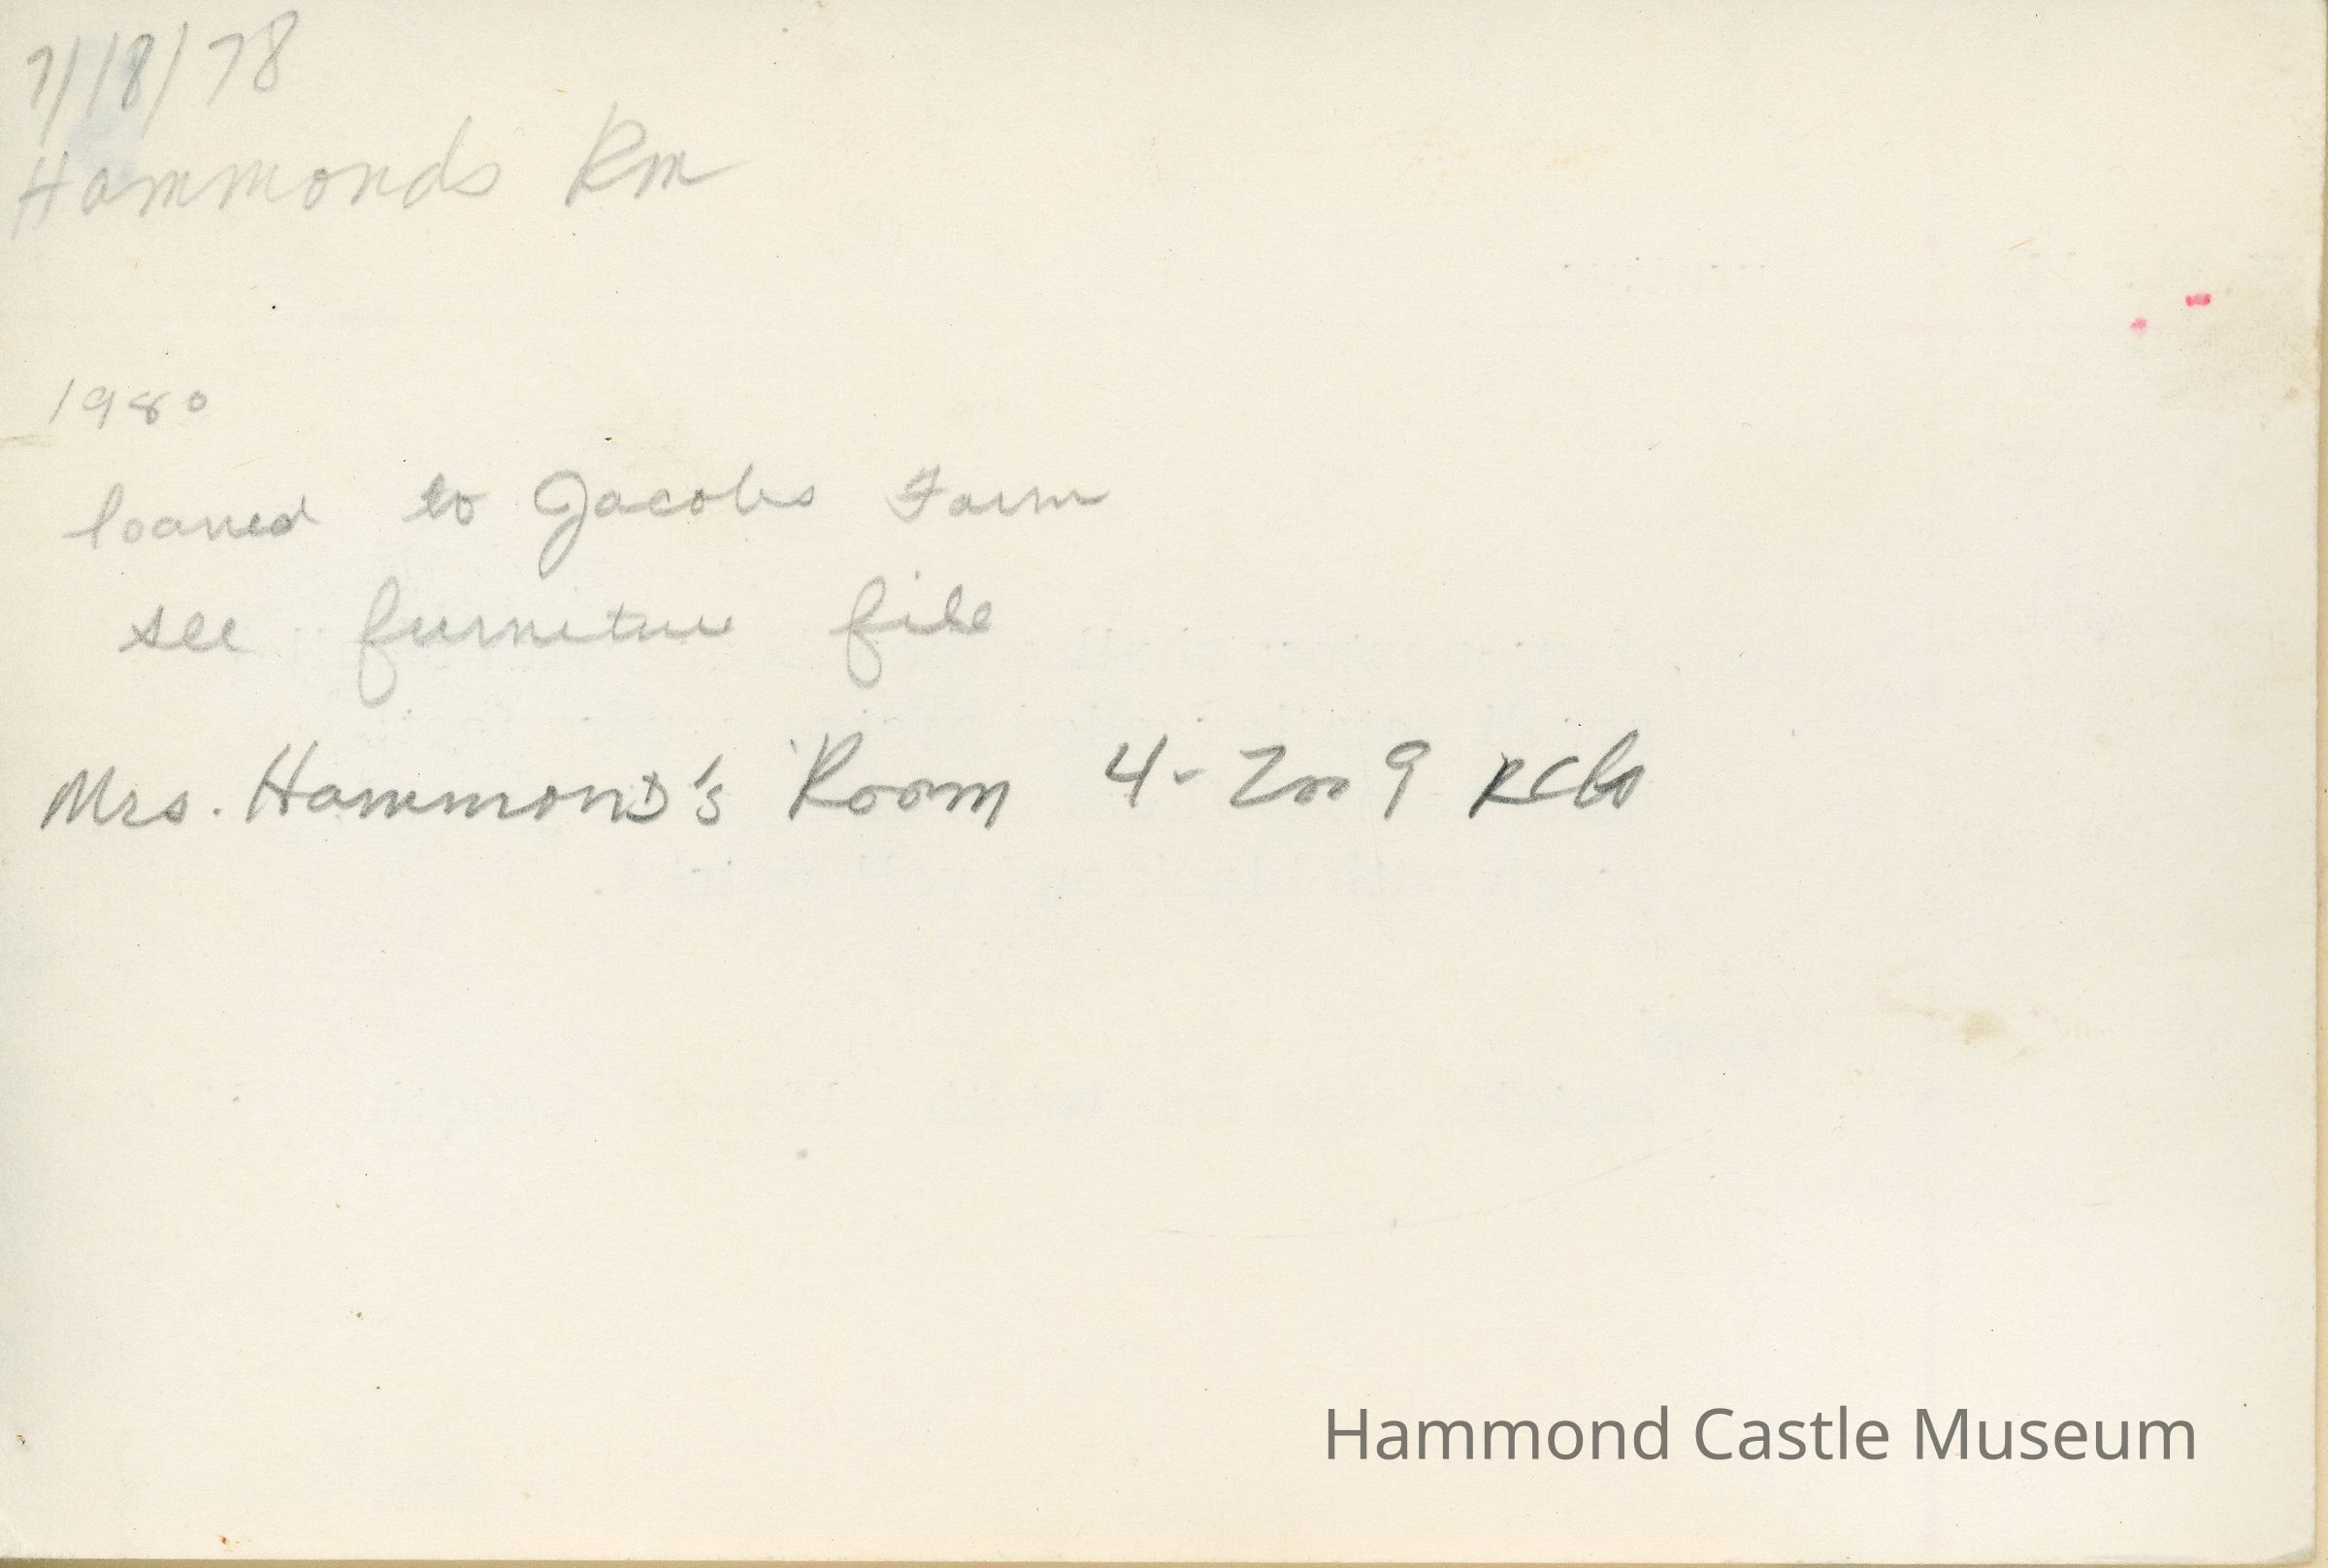 7/18/78
Hammonds Rm
1980
loaned to Jacobs Farm
see furniture file
Mrs. Hammond's Room 4-2009
Hammond Castle Museum